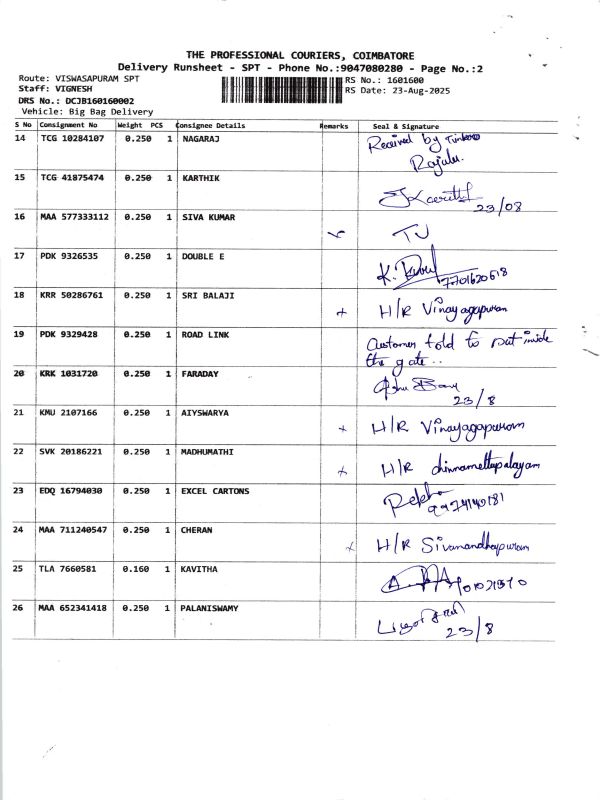 THE PROFESSIONAL COURIERS, COIMBATORE
Delivery Runsheet - SPT - Phone No.:9047080280 - Page No.:2
Route: VISWASAPURAM SPT
RS No.: 1601600
Staff: VIGNESH
RS Date: 23-Aug-2025
DRS No.: DCJB160160002
Vehicle: Big Bag Delivery
S No Consignment No Weight PCS Consignee Details Remarks Seal & Signature
14 TCG 10284107 0.250 1 NAGARAJ Received by
Rajalu.
15 TCG 41875474 0.250 1 KARTHIK
23/08
16 MAA 577333112 0.250 1 SIVA KUMAR TJ
17 PDK 9326535 0.250 1 DOUBLE E K.
7701620618
18 KRR 50286761 0.250 1 SRI BALAJI x H/R Vinayagapuram
19 PDK 9329428 0.250 1 ROAD LINK Customer told to put inside
the gate..
20 KRK 1031720 0.250 1 FARADAY
23/8
21 KMU 2107166 0.250 1 AIYSWARYA x H/R Vinayagapuram
22 SVK 20186221 0.250 1 MADHUMATHI x H/R chinnamettupalayam
23 EDQ 16794030 0.250 1 EXCEL CARTONS Rekha
24 MAA 711240547 0.250 1 CHERAN x H/R Sivanandhapuram
25 TLA 7660581 0.160 1 KAVITHA
26 MAA 652341418 0.250 1 PALANISWAMY
23/8